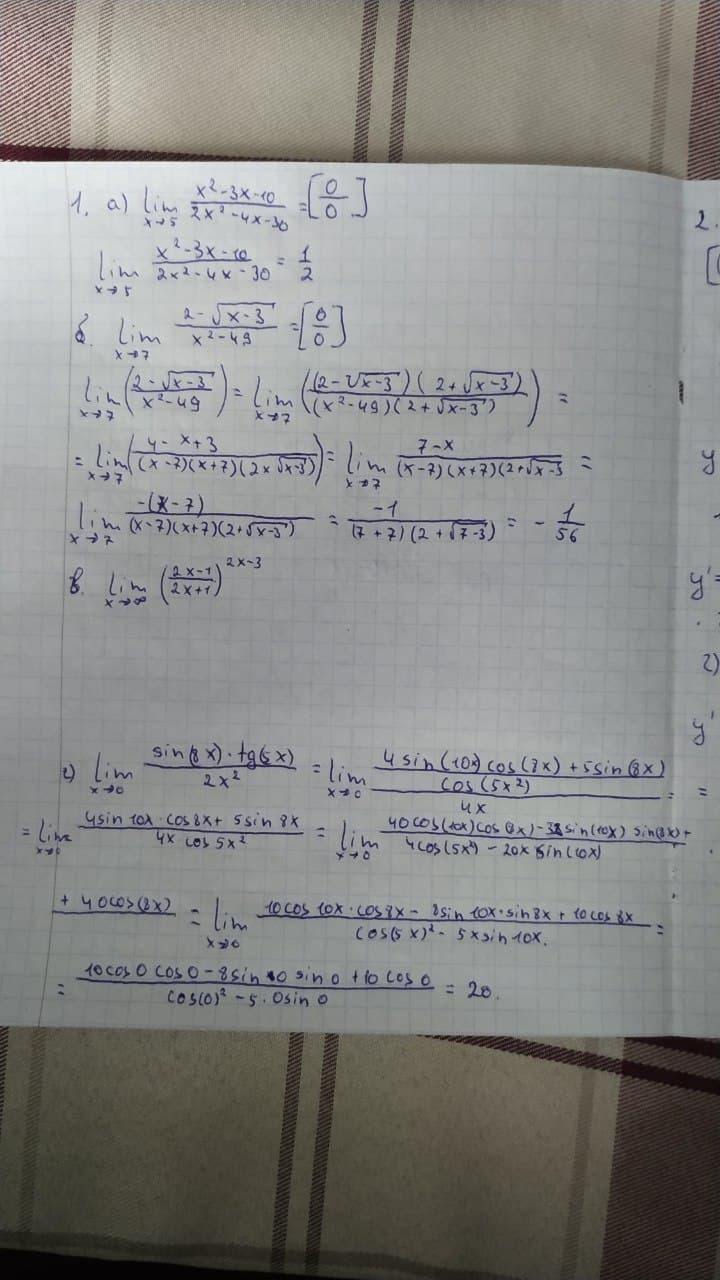 1. а) lim x→5 (x²-3x-10)/(2x²-4x-30) = [0/0]
lim x→5 (x²-3x-10)/(2x²-4x-30) = 1/2
б. lim x→7 (2-√(x-3))/(x²-49) = [0/0]
lim x→7 ((2-√(x-3))/(x²-49)) = lim x→7 (((2-√(x-3))(2+√(x-3)))/((x²-49)(2+√(x-3)))) =
= lim x→7 ((4-x+3)/((x-7)(x+7)(2×√(x-3)))) = lim x→7 (7-x)/((x-7)(x+7)(2+√(x-3) =
lim x→7 (-(x-7))/((x-7)(x+7)(2+√(x-3))) = (-1)/((7+7)(2+√(7-3))) = -1/56
в. lim x→∞ ((2x-1)/(2x+1))^(2x-3)
г) lim x→0 (sin(8x)·tg(5x))/(2x²) = lim x→0 ((4sin(10x)cos(8x)+5sin(8x))/(cos(5x²)))/(4x) =
= lim x→0 (4sin10x·cos8x+5sin8x)/(4x cos5x²) = lim x→0 (40cos(10x)cos(8x)-32sin(10x)sin(8x)+)/(4cos(5x²)-20x sin(10x)
+40cos(8x) = lim x→0 (10cos10x·cos8x-8sin10x·sin8x+10cos8x)/(cos(5x)²-5xsin10x.) =
= (10cos0cos0-8sin0sin0+10cos0)/(cos(0)²-5·0sin0) = 20.
2.
[
y
y'=
2)
y'
=